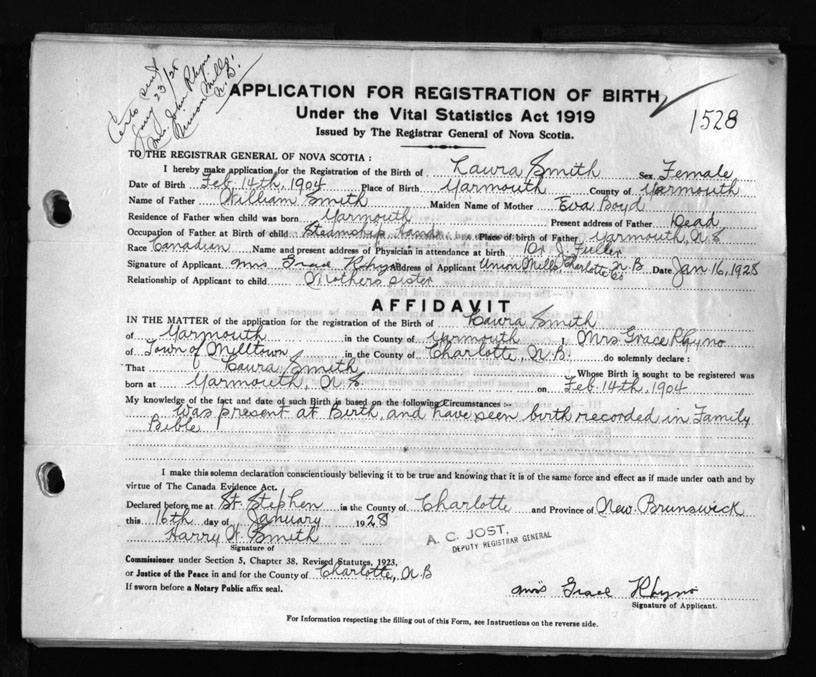 Certo sent
Jany 23/28
Mrs. John Rhyno
Union Mills,
N.B.
APPLICATION FOR REGISTRATION OF BIRTH
Under the Vital Statistics Act 1919
1528
Issued by The Registrar General of Nova Scotia.
TO THE REGISTRAR GENERAL OF NOVA SCOTIA :
I hereby make application for the Registration of the Birth of Laura Smith Sex Female
Date of Birth Feb 14th, 1904 Place of Birth Yarmouth County of Yarmouth
Name of Father William Smith Maiden Name of Mother Eva Boyd
Residence of Father when child was born Yarmouth Present address of Father Dead
Occupation of Father at Birth of child Steamship Place of birth of Father Yarmouth, N S
Race Canadian Name and present address of Physician in attendance at birth Dr. J. Fuller
Signature of Applicant Mrs Grace Rhyno Address of Applicant Union Mills, Charlotte Co N.B Date Jan 16, 1928
Relationship of Applicant to child Mothers Sister
AFFIDAVIT
IN THE MATTER of the application for the registration of the Birth of Laura Smith
of Yarmouth in the County of Yarmouth I, Mrs Grace Rhyno
of Town of Milltown in the County of Charlotte, N.B. do solemnly declare :
That Laura Smith Whose Birth is sought to be registered was
born at Yarmouth, N.S. on Feb 14th, 1904
My knowledge of the fact and date of such Birth is based on the following Circumstances :-
Was present at Birth, and have seen birth recorded in Family
Bible
I make this solemn declaration conscientiously believing it to be true and knowing that it is of the same force and effect as if made under oath and by
virtue of The Canada Evidence Act.
Declared before me at St. Stephen in the County of Charlotte and Province of New Brunswick
this 16th day of January 1928
Harry W. Smith
A. C. JOST,
DEPUTY REGISTRAR GENERAL
Signature of
Commissioner under Section 5, Chapter 38, Revised Statutes, 1923,
or Justice of the Peace in and for the County of Charlotte, N.B
If sworn before a Notary Public affix seal.
Mrs Grace Rhyno
Signature of Applicant.
For Information respecting the filling out of this Form, see Instructions on the reverse side.